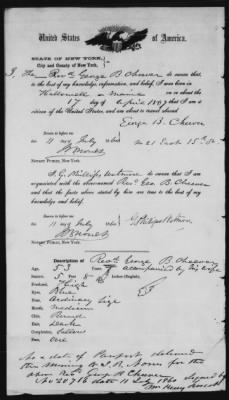 United States of America.
STATE OF NEW YORK,
City and County of New York,
I, The Rev. George B. Cheever do swear that,
to the best of my knowledge, information, and belief, I was born in
Hallowell in Maine on or about the
17 day of April 1807 that I am a
citizen of the United States, and am about to travel abroad.
George B. Cheever
Sworn to before me
this 11 day July 186 No 21 East 15th St
NOTARY PUBLIC, New York.
I, G. Phillips do swear that I am
acquainted with the abovenamed Rev. Geo B. Cheever
and that the facts above stated by him are true to the best of my
knowledge and belief.
Sworn to before me
this 11 day July 186
NOTARY PUBLIC, New York.
Description of Rev. George B. Cheever
Age, 53 accompanied by his wife
Stature, 5 8
Forehead, High
Eyes, Blue
Nose, Ordinary size
Mouth, Medium
Chin, Round
Hair, Dark
Complexion, Sallow
Face, Oval
of Passport delivered
this morning for the
above Rev. George B. Cheever
No 20718 date 11 July 1860 Signed by
Henry